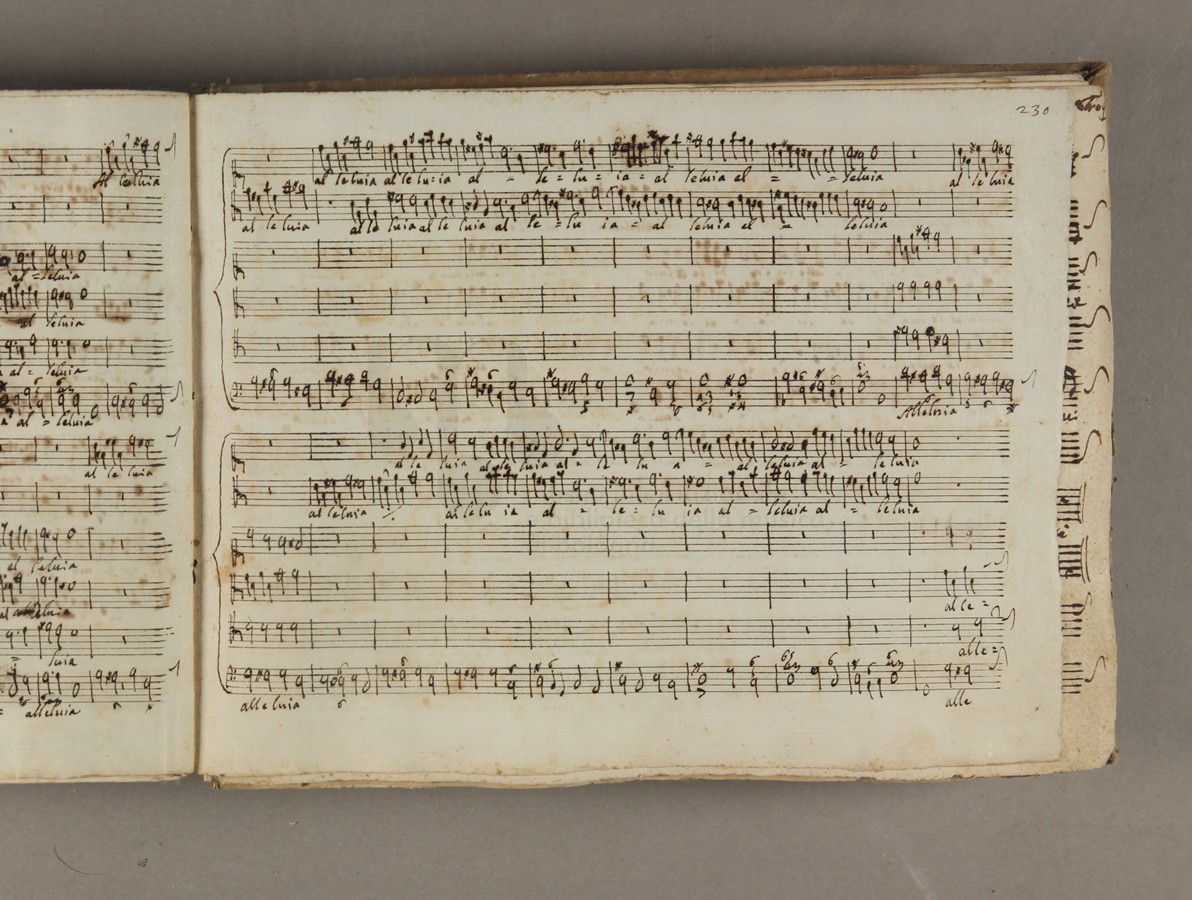 230
Al leluia
al = leluia
al leluia
al = leluia
al = leluia
al le luia
al leluia
luia
= alleluia
al leluia al le lu=ia al - le = lu = ia = al leluia al = = leluia al le luia
al le luia al le luia al le luia al le = lu ia = al leluia al = leluia
Alleluia
al le luia al le luia al = le lu a = al leluia al = le luia
al leluia al le lu ia al = le = lu ia al = leluia al = leluia
al le =
alle =
alle luia alle